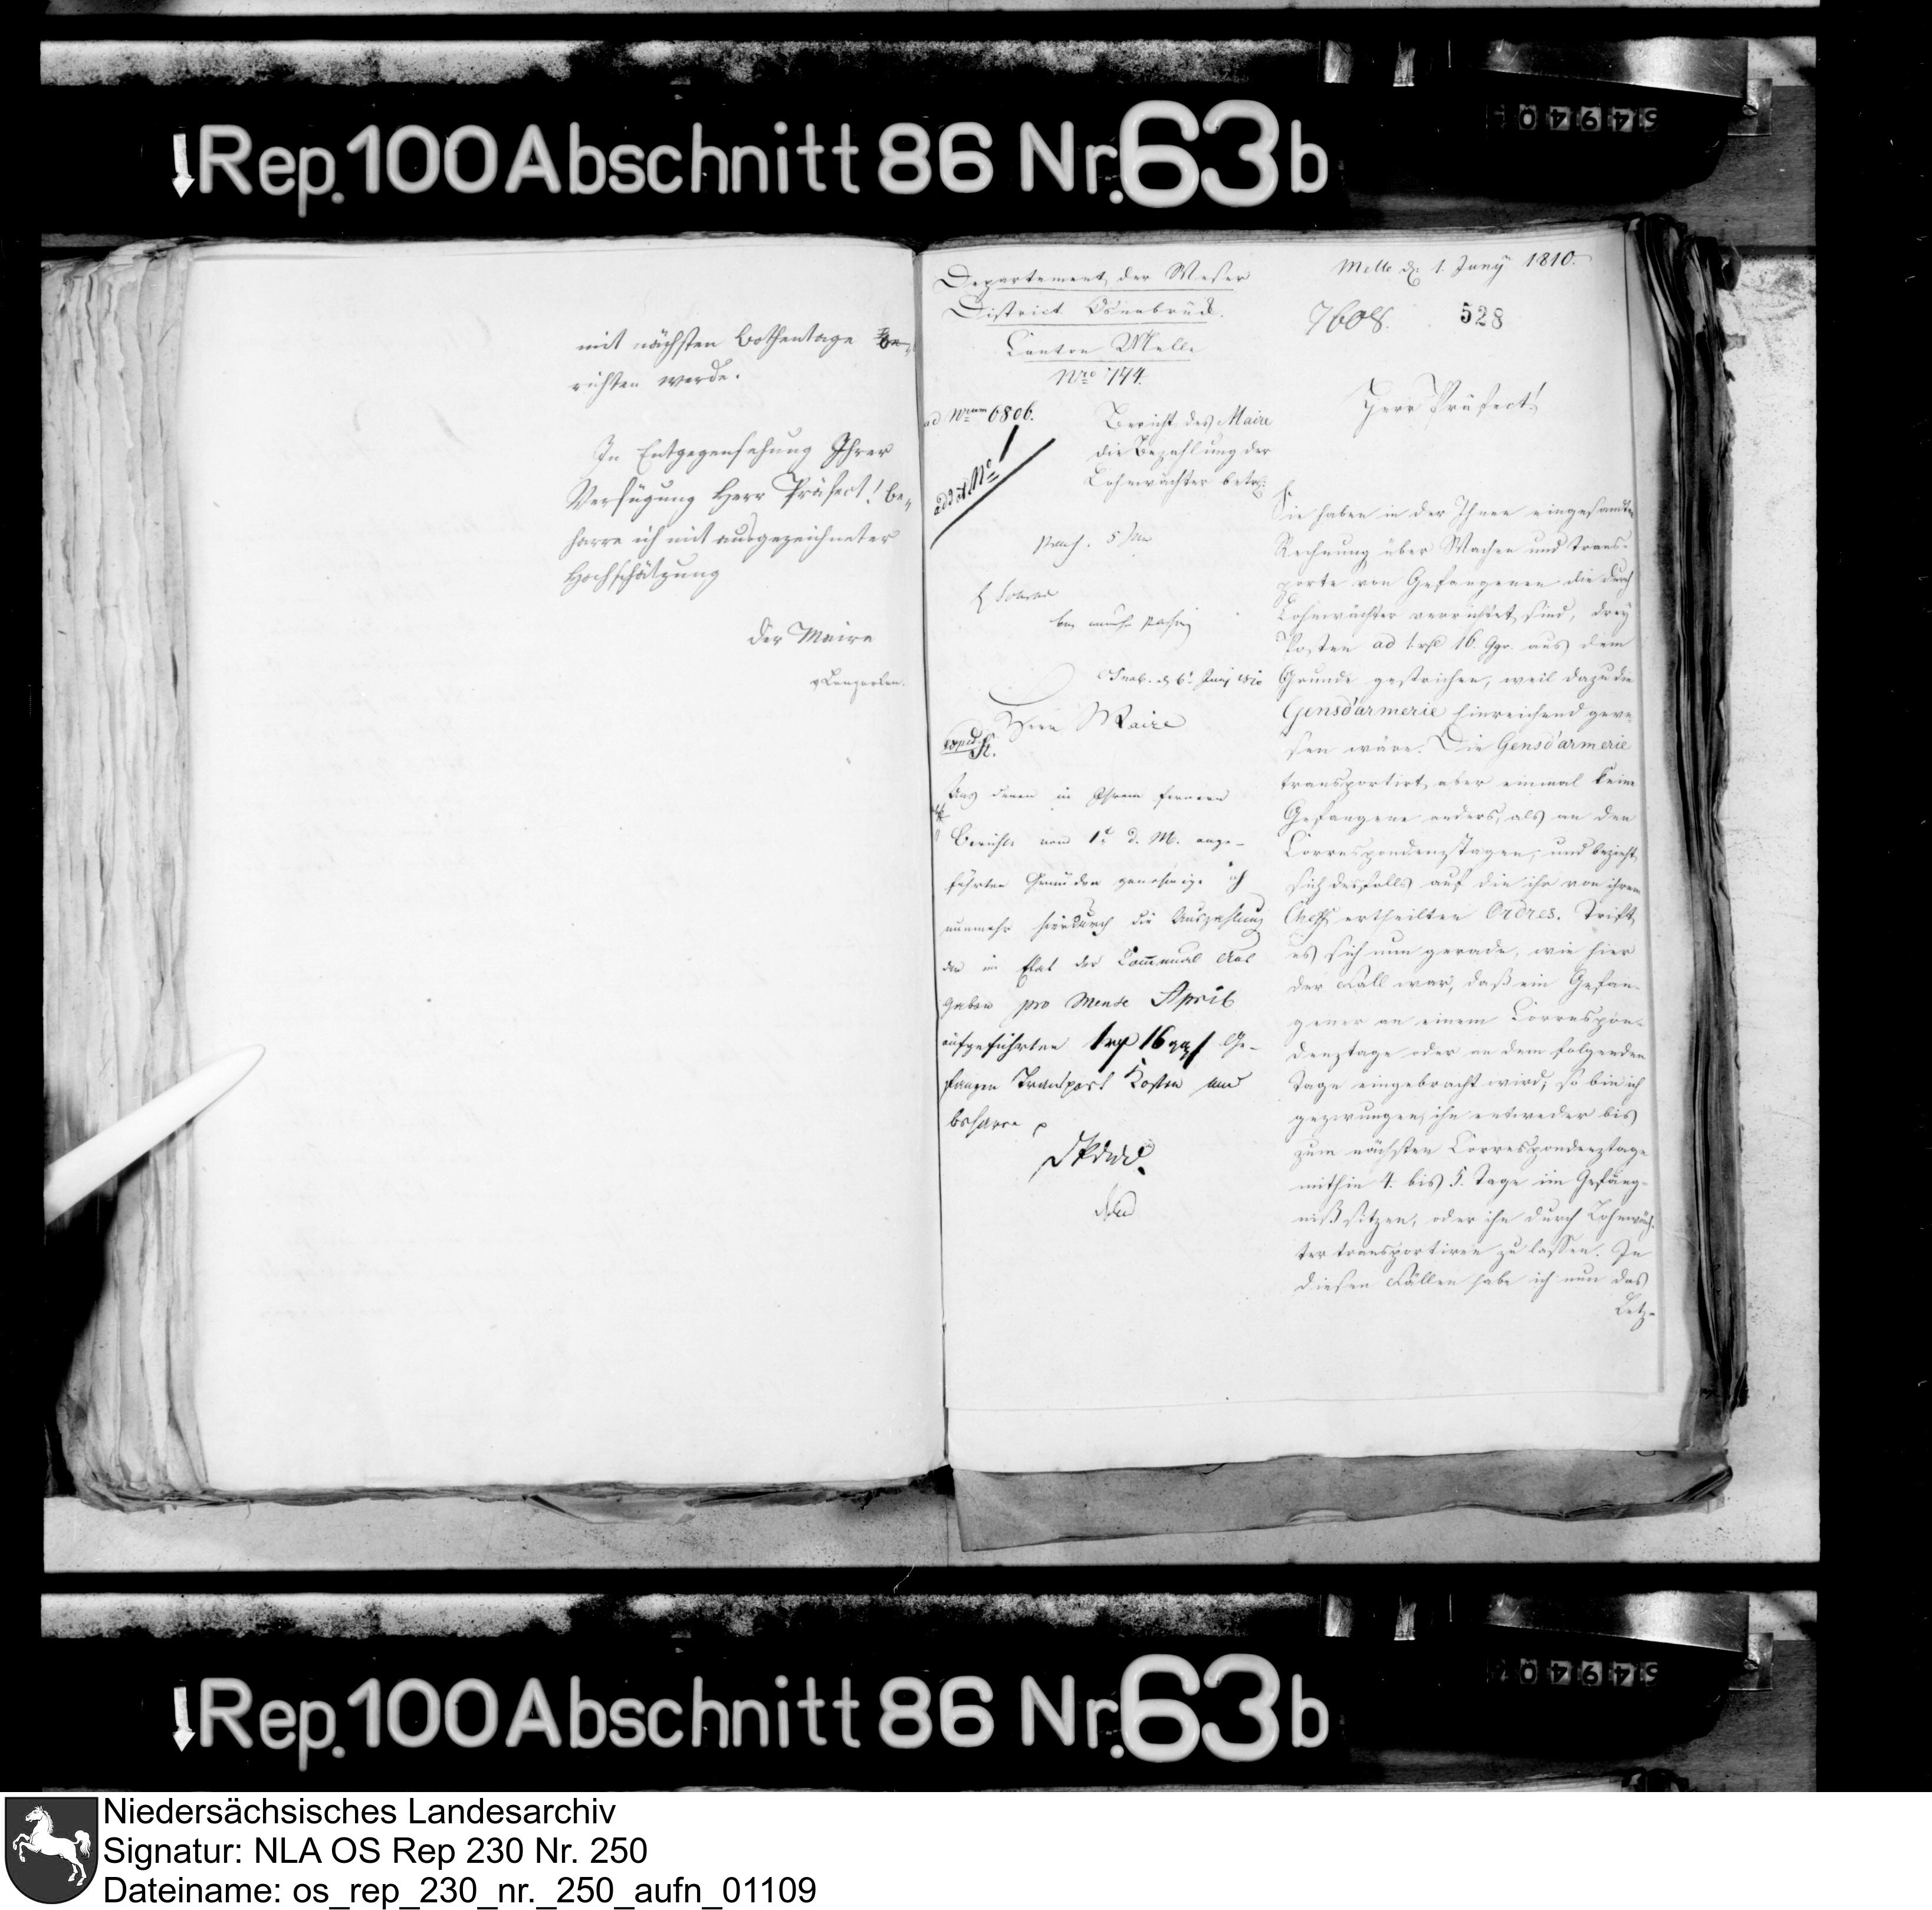 Rep. 100 Abschnitt 86 Nr. 63 b
mit nächsten Bothentage be-
richten werde.
In Entgegensehung Ihrer
Verfügung Herr Präfect! be-
harre ich mit ausgezeichneter
Hochschätzung
Der Maire
Departement der Weser
District Osnabrück.
Canton Melle
Nro 744.
ad Nrum 6806.
Bericht des Maire
die Bezahlung der
Lohnwächter betr.
Osnab. d. 6t Juny 1810
Herr Maire
Aus denen in Ihrem fernern
Berichte vom 1t d. M. ange-
führten Gründen genehmige ich
nunmehr hierdurch die Auszahlung
der im Etat der Communal Aus
gaben pro Mense April
aufgeführten 1 rp 16 ggr Ge-
fangen Transport Kosten und
beharre p
Melle d. 1. Juny 1810.
7608. 528
Herr Präfect!
Sie haben in der Ihnen eingesandten
Rechnung über Wachen und Trans-
porte von Gefangenen die durch
Lohnwächter verrichtet sind, drey
Posten ad 1 rp 16 Ggr. aus dem
Grunde gestrichen, weil dazu die
Gensd'armerie hinreichend gewe-
sen wäre. Die Gensd'armerie
transportirt aber einmal keine
Gefangene anders, als an den
Correspondenztagen, und bezieht
sich desfalls auf die ihr von ihrem
Cheff ertheilten Ordres. Trift
es sich nun gerade, wie hier
der Fall war, daß ein Gefan-
gener an einem Correspon-
denztage oder an dem folgenden
Tage eingebracht wird; so bin ich
gezwungen, ihn entweder bis
zum nächsten Correspondenztage
mithin 4. bis 5. Tage im Gefäng-
niß sitzen, oder ihn durch Lohnwäch-
ter transportiren zu lassen. In
diesen Fällen habe ich nun das
Letz-
Rep. 100 Abschnitt 86 Nr. 63 b
Niedersächsisches Landesarchiv
Signatur: NLA OS Rep 230 Nr. 250
Dateiname: os_rep_230_nr._250_aufn_01109